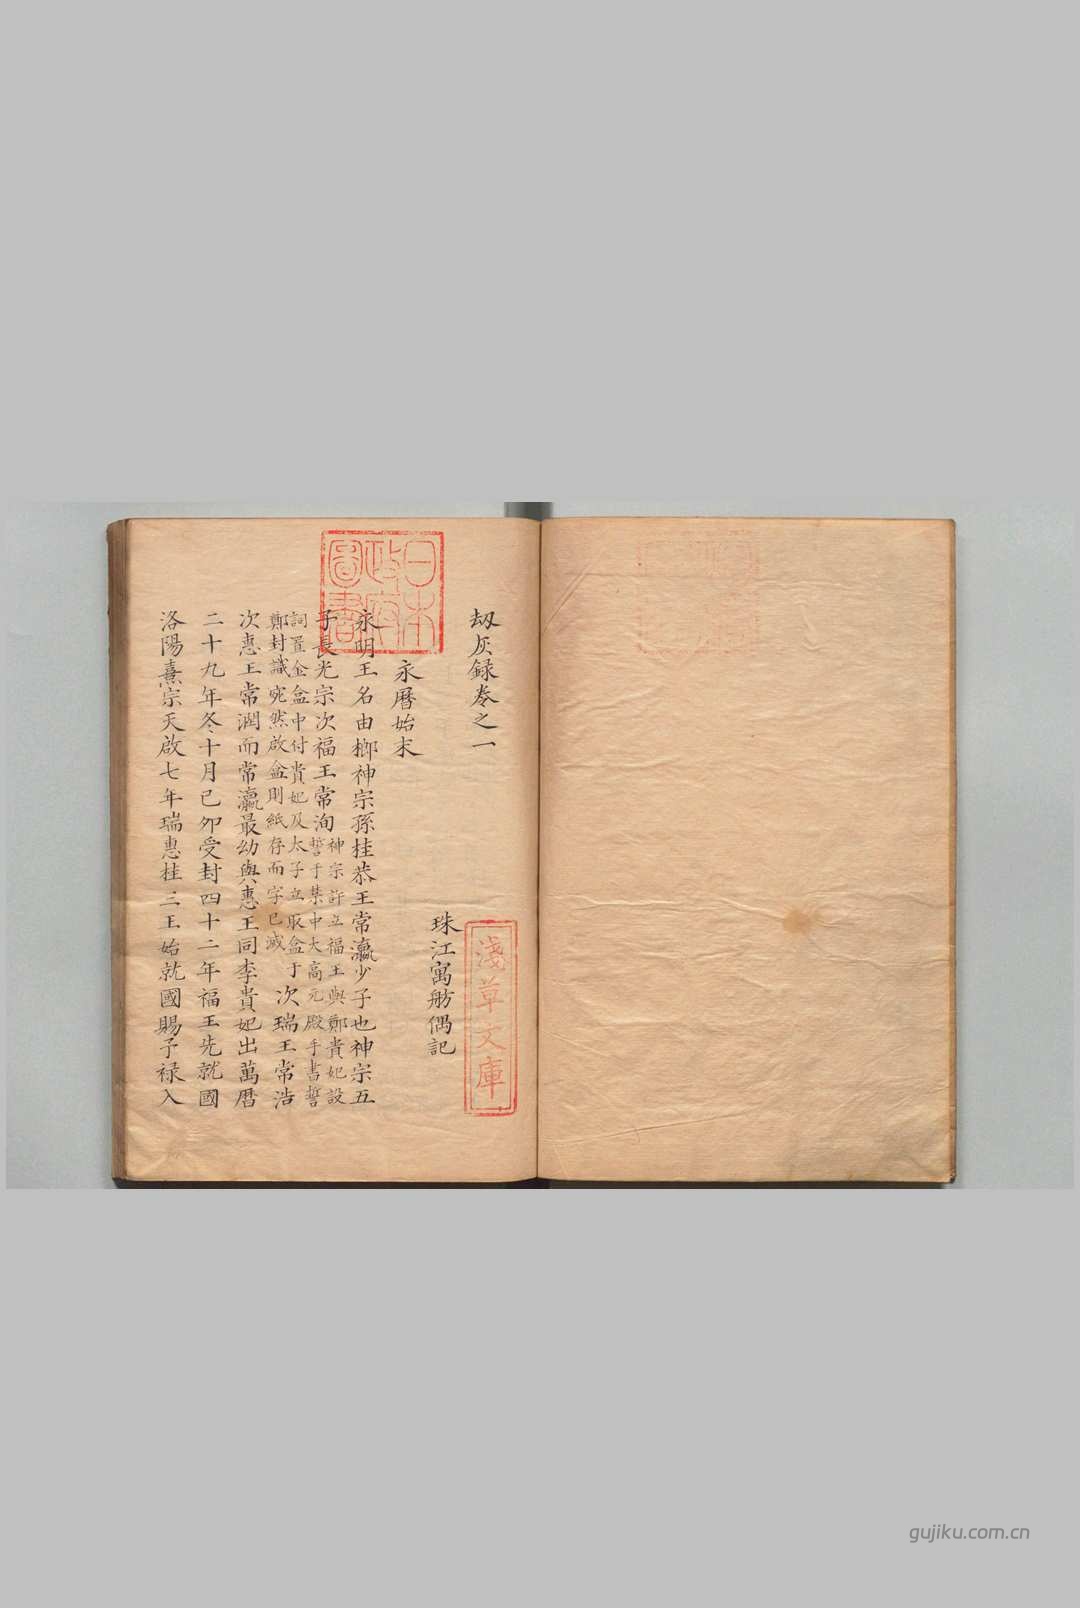 劫灰録卷之一
珠江寓舫偶記
永曆始末
永明王名由榔神宗孫桂恭王常瀛少子也神宗五
子長光宗次福王常洵神宗許立福王與鄭貴妃設誓于禁中大高元殿手書誓
詞置金盒中付貴妃及太子立取盒于鄭封識宛然啟盒則紙存而字已滅次瑞王常浩
次惠王常潤而常瀛最幼與惠王同李貴妃出萬曆
二十九年冬十月己卯受封四十二年福王先就國
洛陽熹宗天啟七年瑞惠桂三王始就國賜予祿入
日本政府圖書
淺草文庫
gujiku.com.cn